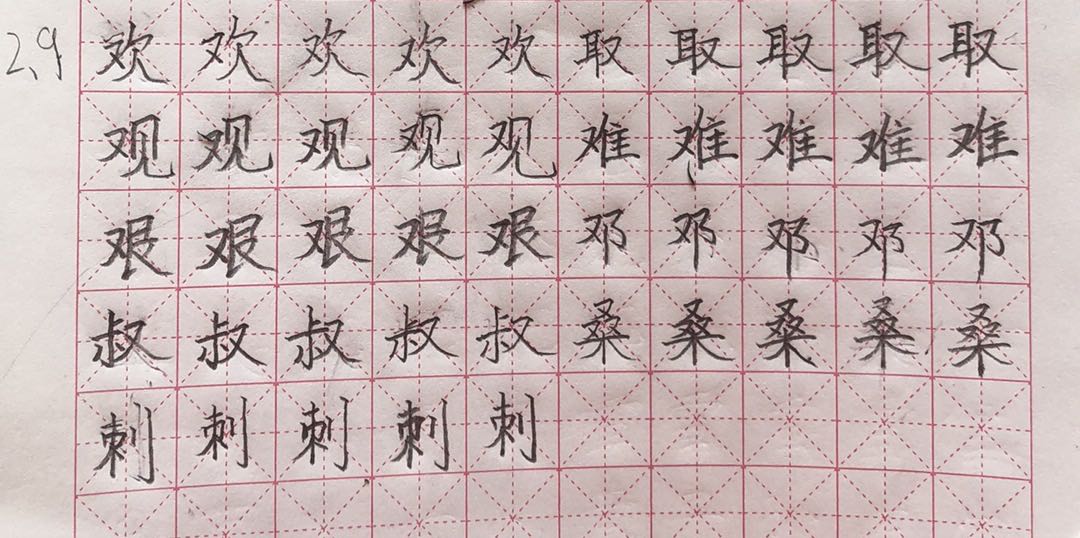 2.9 欢欢欢欢欢取取取取取
观观观观观难难难难难
艰艰艰艰艰邓邓邓邓邓
叔叔叔叔叔桑桑桑桑桑
刺刺刺刺刺